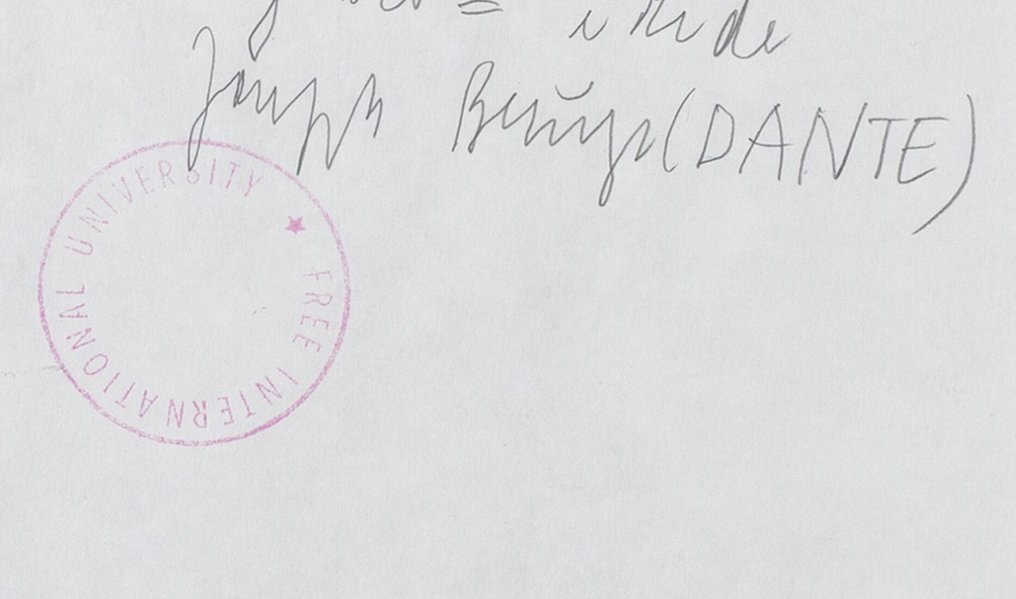 Joseph Beuys (DANTE)
FREE INTERNATIONAL UNIVERSITY